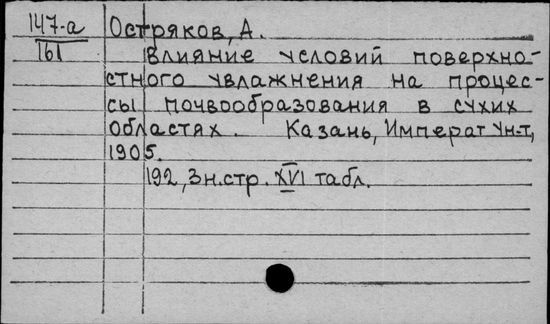 147-а Остряков, А.
161 Влияние условий поверхно-
стного увлажнения на процес-
сы почвообразования в сухих
областях. Казань, Императ Ун-т,
1905.
192, 3 н.стр. XVI табл.